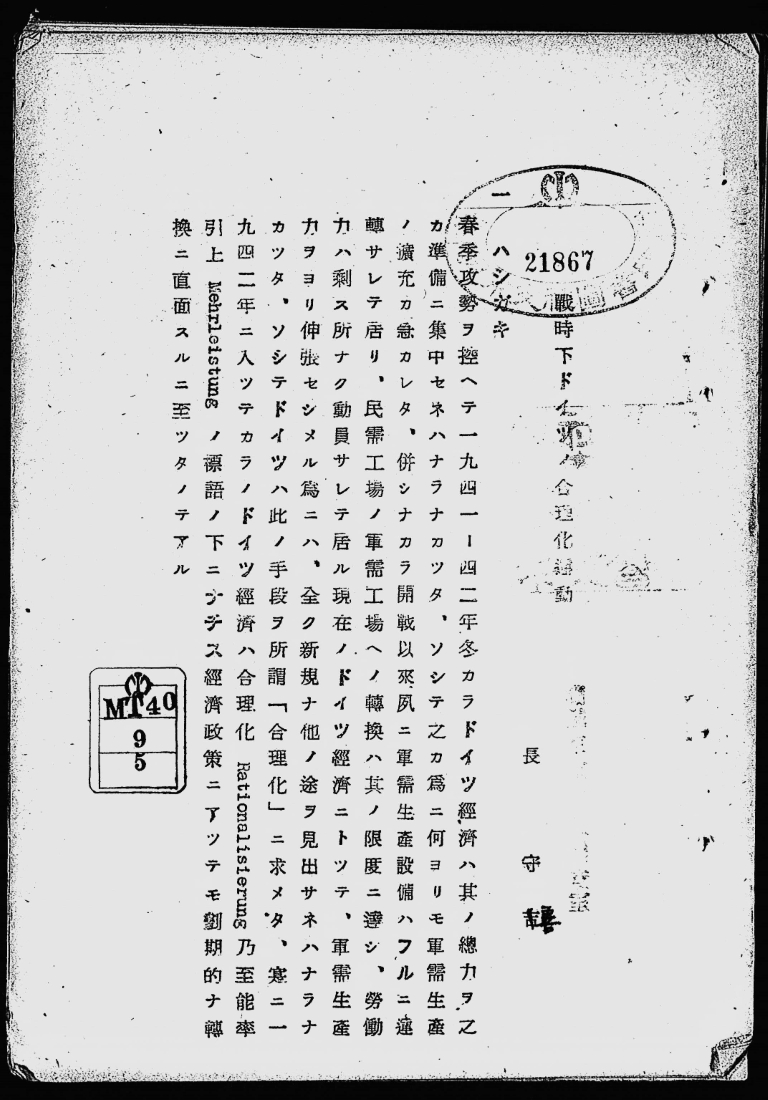 戰時下ドイツノ合理化運動
長守善
一 ハシガキ
春季攻勢ヲ控ヘテ一九四一ー四二年冬カラドイツ經濟ハ其ノ總力ヲ之
カ準備ニ集中セネハナラナカツタ、ソシテ之カ爲ニ何ヨリモ軍需生產
ノ擴充カ急カレタ、併シナカラ開戰以來夙ニ軍需生產設備ハフルニ運
轉サレテ居リ、民需工場ノ軍需工場ヘノ轉換ハ其ノ限度ニ達シ、勞働
力ハ剩ス所ナク動員サレテ居ル現在ノドイツ經濟ニトツテ、軍需生產
力ヲヨリ伸張セシメル爲ニハ、全ク新規ナ他ノ途ヲ見出サネハナラナ
カツタ、ソシテドイツハ此ノ手段ヲ所謂「合理化」ニ求メタ、寔ニ一
九四二年ニ入ツテカラノドイツ經濟ハ合理化 Rationalisierung 乃至能率
引上 Mehrleistung ノ標語ノ下ニナチス經濟政策ニアツテモ劃期的ナ轉
換ニ直面スルニ至ツタノテアル
21867
MT40
9
5